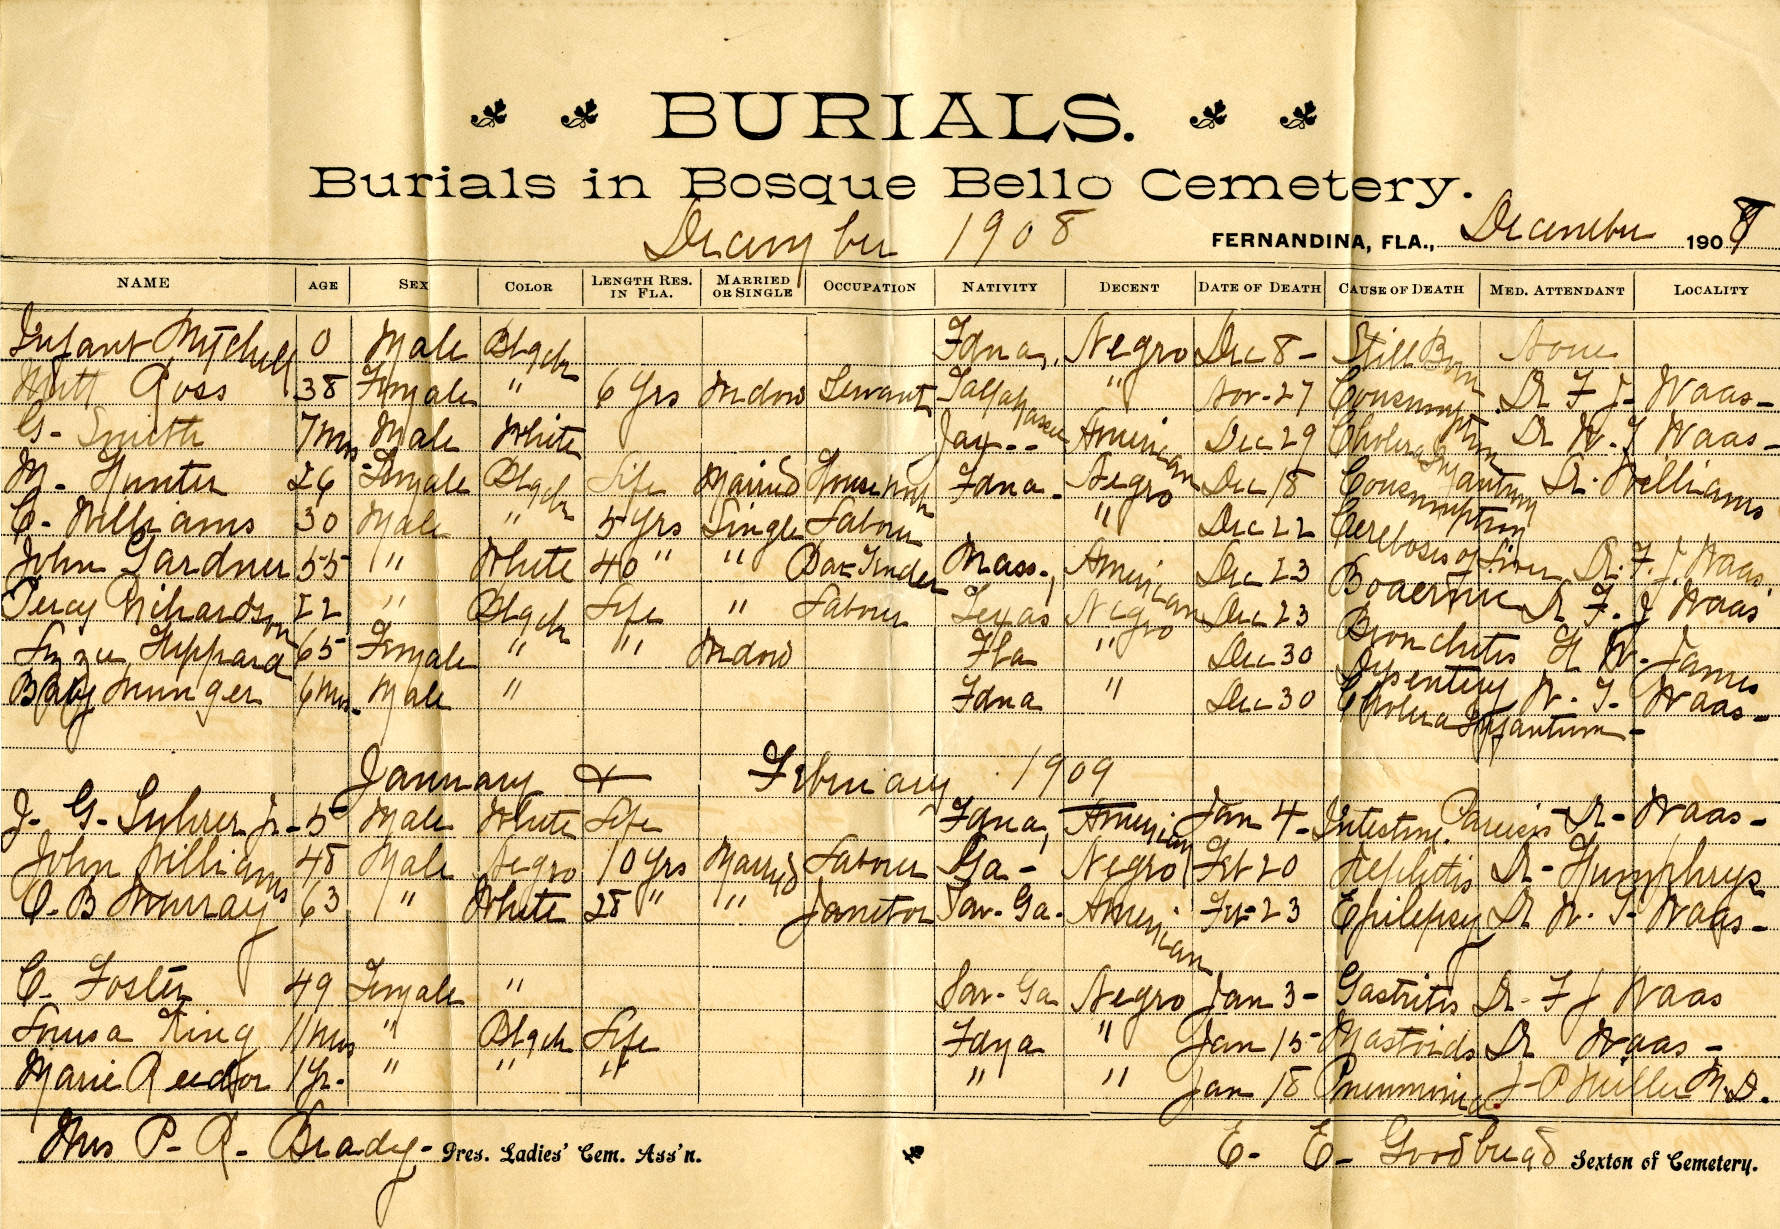 BURIALS.
Burials in Bosque Bello Cemetery.
December 1908 FERNANDINA, FLA., December 1908
NAME AGE SEX COLOR LENGTH RES. IN FLA. MARRIED OR SINGLE OCCUPATION NATIVITY DECENT DATE OF DEATH CAUSE OF DEATH MED. ATTENDANT LOCALITY
Infant Mitchell 0 Male Black Fdna, Negro Dec 8- Still Born None
Ross 38 Female " 6 Yrs Widow Servant Tallahassee " Nov-27 Consumption Dr F J- Waas-
G- Smith 7mos Male White Jax-- American Dec 29 Cholera Infantum Dr W. T Waas-
M- Hunter 26 Female Black Life Married House wife Fdna- Negro Dec 18 Consumption Dr. Williams
C- Williams 30 Male " 5 Yrs Single Labour " Dec 22 of Liver Dr. F. J. Waas.
John Gardner 55 " White 40 " " Bar Tender Mass., American Dec 23 Dr F. J Waas
Percy Richardson 22 " Black Life " Labour Texas Negro Dec 23 Bronchitis H W- James
Lizzie Heppard 65 Female " " Widow Fla " Dec 30 Dysentery W. T. Waas-
Baby Munger 6mos. Male " Fdna " Dec 30 Cholera Infantum-
January & February 1909
J- G- Suhrer Jr- 5 Male White Life Fdna, American Jan 4- Intestine Paresis Dr- Waas-
John Williams 48 Male Negro 10 Yrs Married Labour Ga- Negro Feb 20 Nephritis Dr- Humphrys
C. B Murray 63 " White 28 " " Janitor Sav- Ga- American Fe-23 Epilepsy Dr W. T- Waas-
C. Foster 49 Female " Sav- Ga Negro Jan 3- Gastritis Dr- F J Waas
Louisa King 11mos " Black Life Fdna " Jan 15- Mastoids Dr Waas-
Marie Reedor 1Yr- " " " " " Jan 18 Pneumonia J- P Miller M.D.
Mrs P- R- Brady- Pres. Ladies' Cem. Ass'n. E- E- Goodbread Sexton of Cemetery.